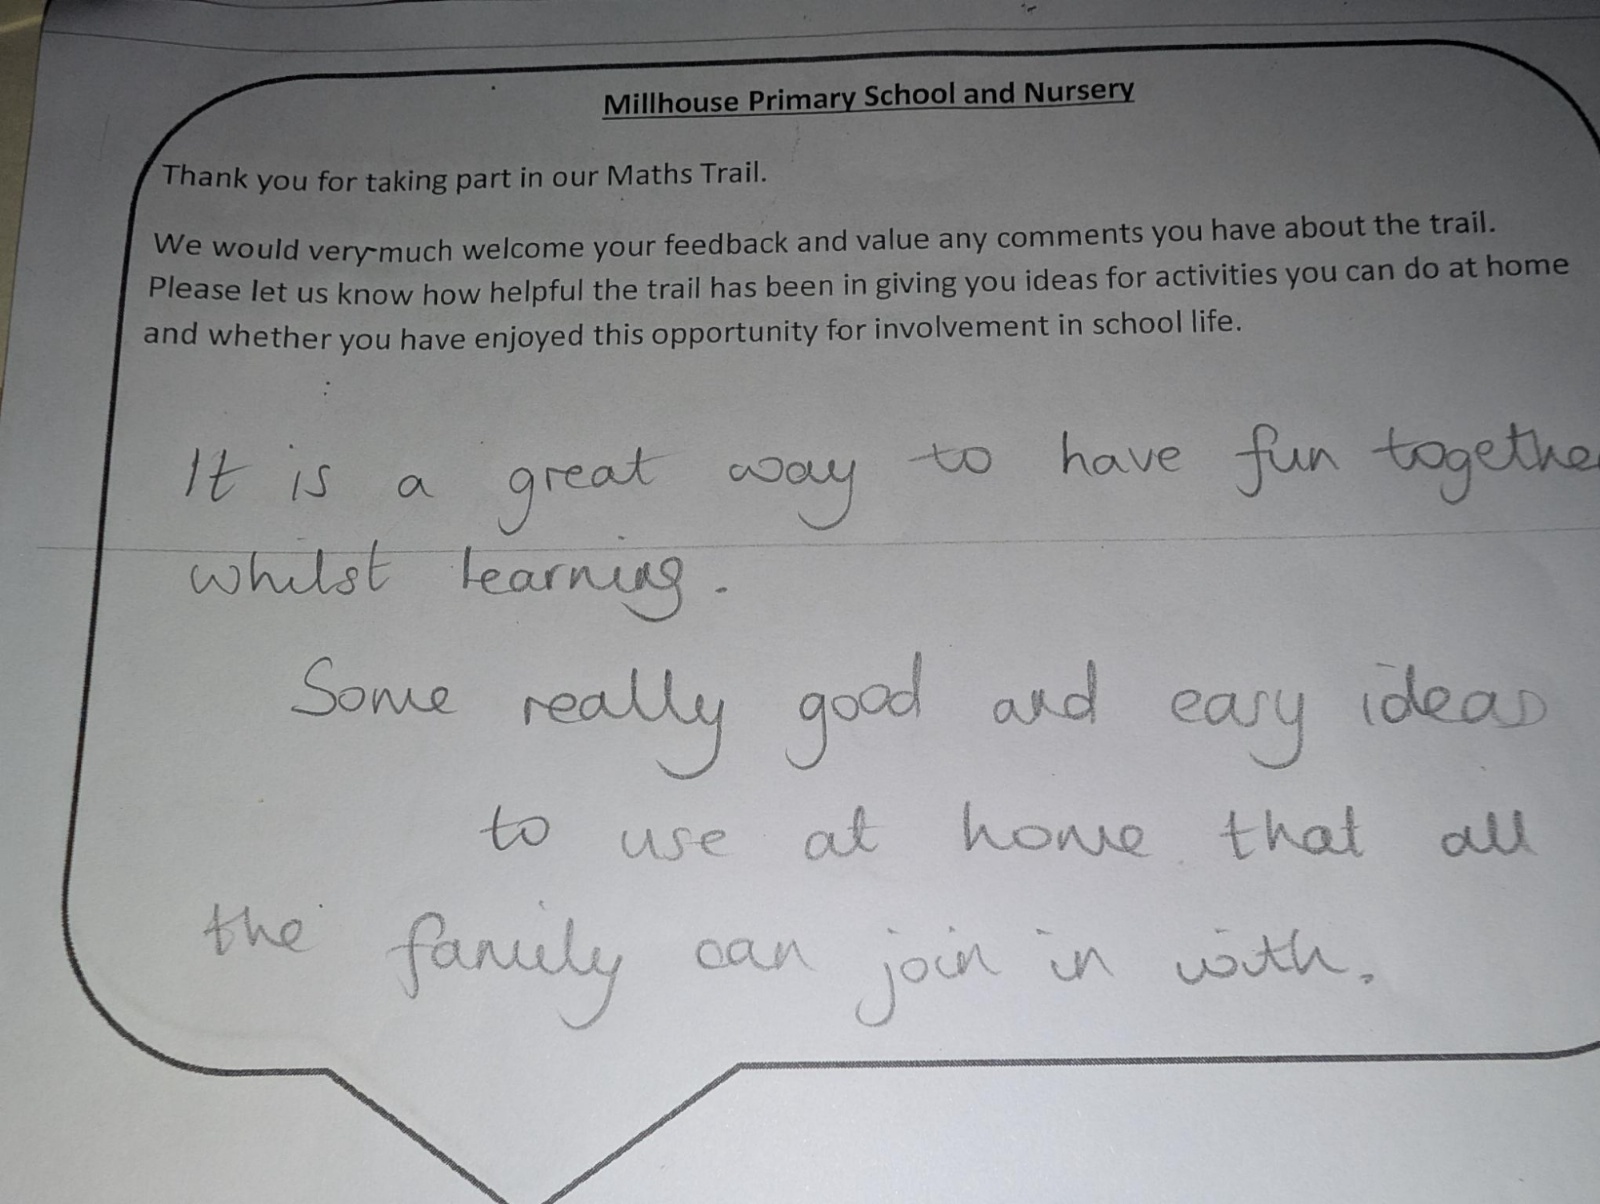 Millhouse Primary School and Nursery
Thank you for taking part in our Maths Trail.
We would very much welcome your feedback and value any comments you have about the trail.
Please let us know how helpful the trail has been in giving you ideas for activities you can do at home
and whether you have enjoyed this opportunity for involvement in school life.
It is a great way to have fun together
whilst learning.
Some really good and easy ideas
to use at home that all
the family can join in with.